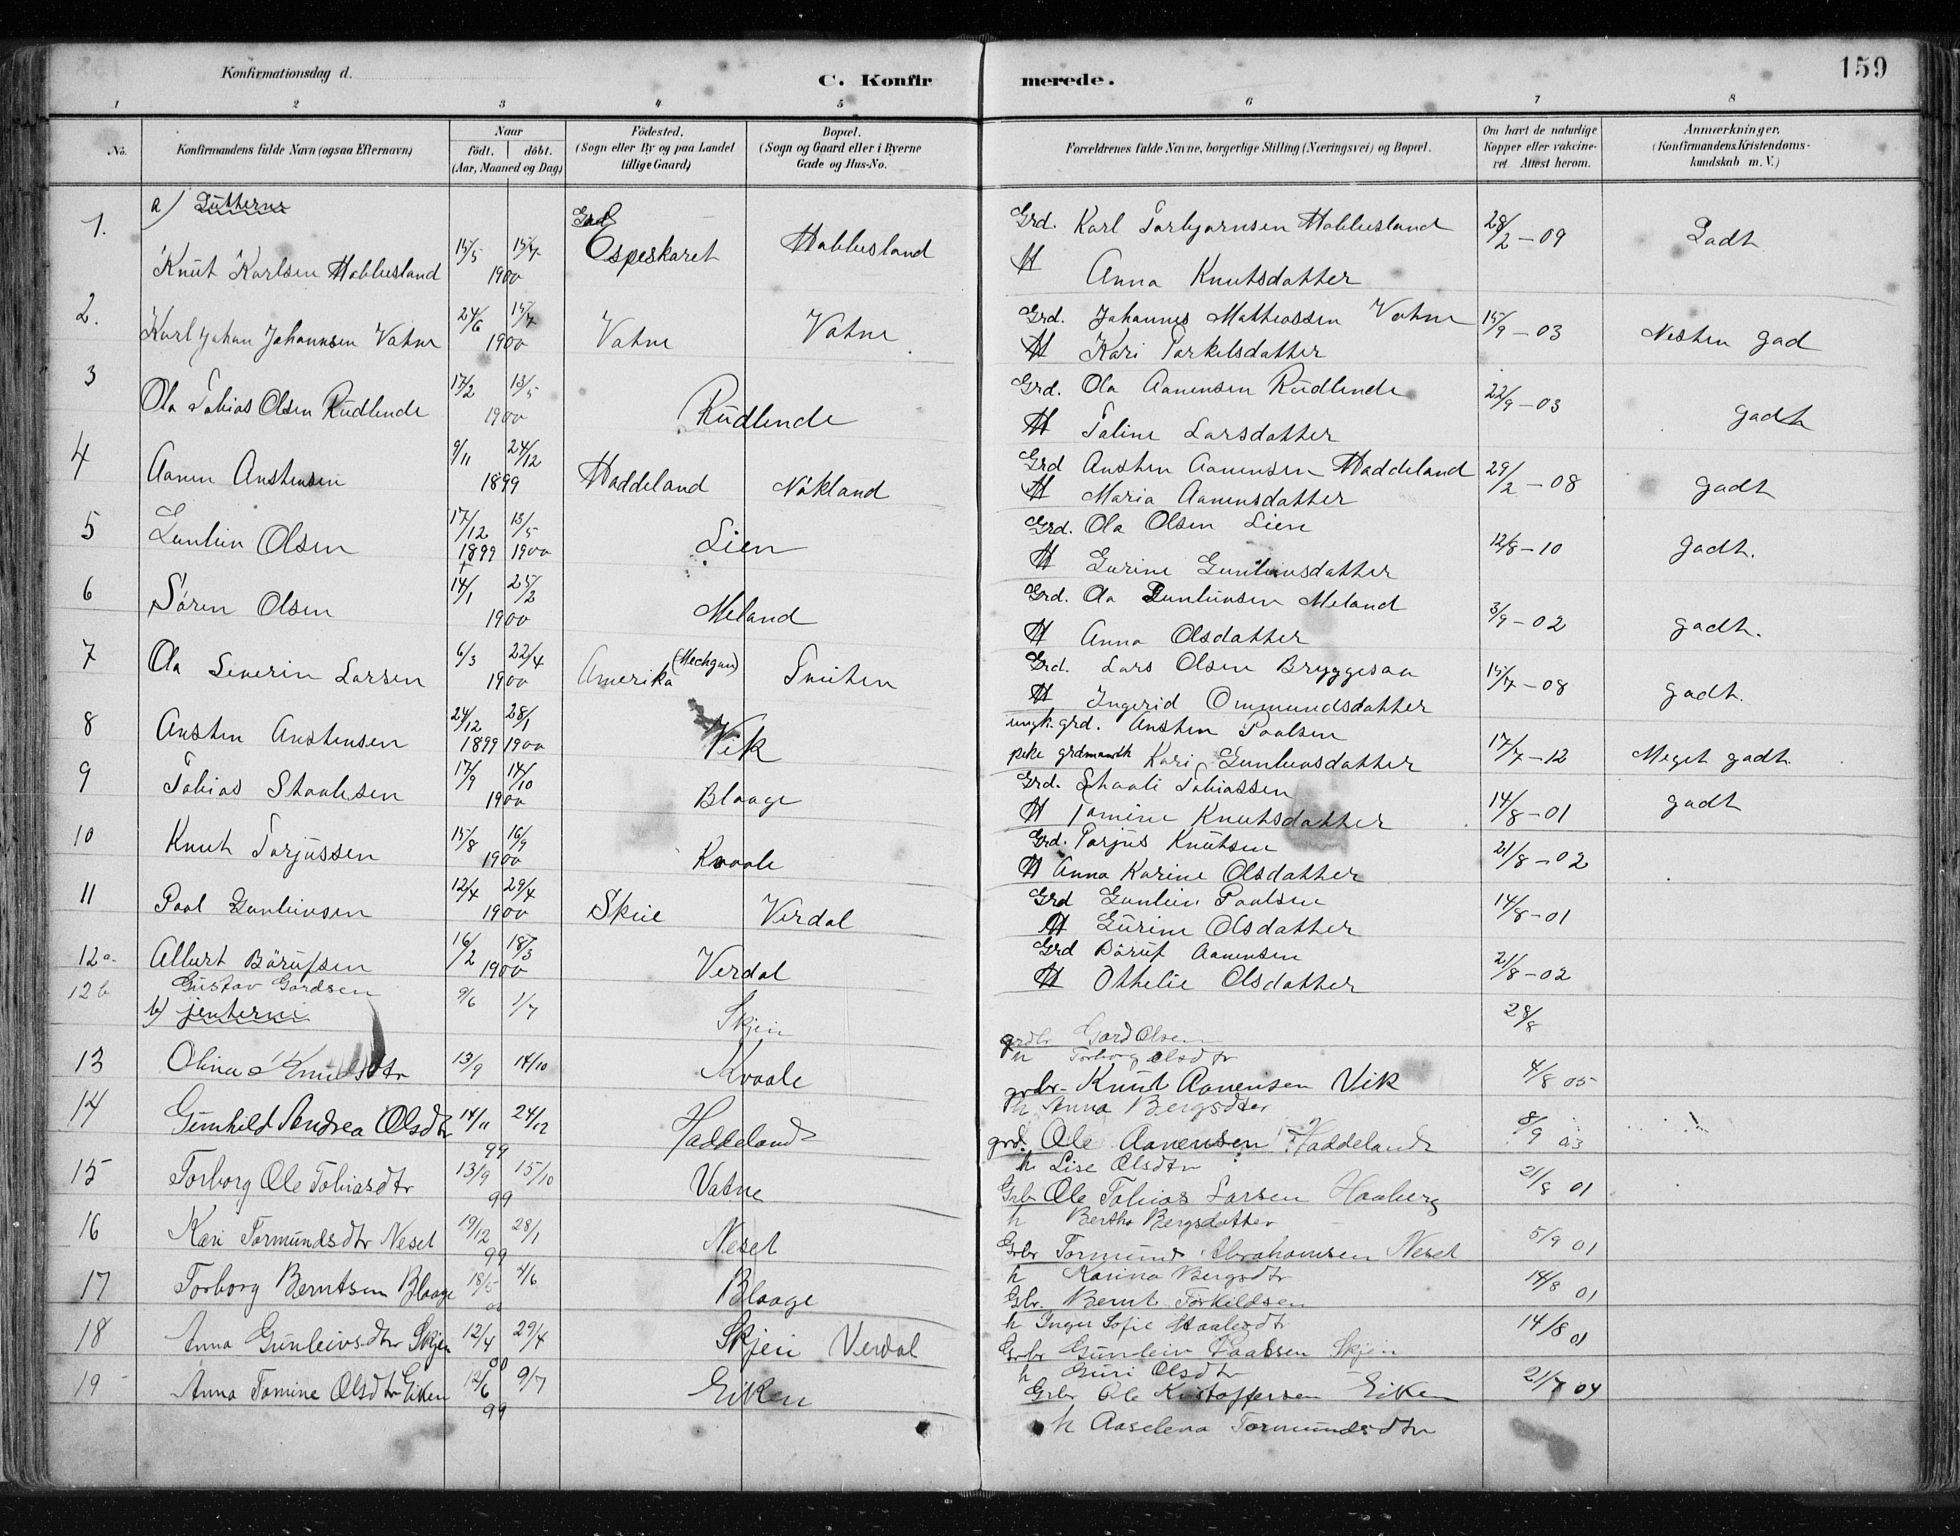 159
Konfirmationsdag d.
C. Konfir merede.
1 2 3 4 5 6 7 8
No. Konfirmandens fulde Navn (ogsaa Efternavn) Naar født. døbt. (Aar, Maaned og Dag) Fødested. (Sogn eller By og paa Landet tillige Gaard) Bopæl. (Sogn og Gaard eller i Byerne Gade og Hus-No. Forældrenes fulde Navne, borgerlige Stilling (Næringsvei) og Bopæl. Om havt de naturlige Kopper eller vakcineret. Attest herom. Anmærkninger. (Konfirmandens Kristendomskundskab m. V.)
a) Gutterne
1. Knut Karlsen Hobbesland 15/5 15/7 1900 Espeskaret Hobbesland Grd. Karl Torbjørnsen Hobbesland 28/2 – 09 Godt
H Anna Knutsdatter
2. Karl Johan Johannesen Vatne 24/6 15/7 1900 Vatne Vatne Grd. Johannes Mathiassen Vatne 15/9 – 03 Nesten god
H Kari Torkelsdatter
3 Ola Tobias Olsen Rudlende 17/2 13/5 1900 Rudlende Grd. Ola Aanensen Rudlende 22/9 – 03 godt
H Taline Larsdatter
4 Aanen Anstensen 9/11 24/12 1899 Haddeland Nökland Grd Ansten Aanensen Haddeland 29/2 – 08 godt
H Maria Aanensdatter
5 Gunleiv Olsen 17/12 1899 13/5 1900 Lien Grd. Ola Olsen Lien 12/8 – 10 godt.
H Gurine Gunleivsdatter
6 Sören Olsen 14/1 25/2 1900 Meland Grd. Ola Gunleivsen Meland 3/9 – 02 godt.
H Anna Olsdatter
7 Ola Severin Larsen 6/3 22/4 1900 Amerika (Mechgan) Grd. Lars Olsen Bryggesaa 15/7 – 08 godt.
H Ingerid Ommundsdatter
8 Ansten Anstensen 24/12 1899 28/1 1900 Vik ungk. grd. Ansten Paalsen 17/7 – 12 Meget godt.
pike Kari Gunleivsdatter
9 Tobias Staalesen 17/9 14/10 1900 Blaage Grd. Staali Tobiassen 14/8 – 01 godt
H Tomine Knutsdatter
10 Knut Torjussen 15/8 16/9 1900 Kvaale Grd. Torjus Knutsen 21/8 – 02
H Anna Karine Olsdatter
11 Paal Gunleivsen 12/4 29/4 1900 Skeie Verdal Grd Gunleiv Paalsen 14/8 – 01
H Gurine Olsdatter
12a. Albert Börufsen 16/2 18/3 1900 Verdal Grd Böruf Aanensen 21/8 – 02
H Othelie Olsdatter
12b Gustav Gardsen 9/6 1/7 Skjein 28/8
b) jenterne
grdbr Gard Olsen
h Torborg Olsdtr
13 Olina Knudsdtr 13/9 14/10 Kvaale grbr. Knut Aanensen Vik 4/8 05
h Anna Bergsdter
14 Gunhild Andrea Olsdtr 14/11 24/12 99 Haddeland grd. Ole Aanensen Haddeland 8/9 03
h Lise Olsdtr
15 Torborg Ole Tobiasdtr 13/9 15/10 99 Vatne Grbr Ole Tobias Larsen Haaberg 21/8 01
h Bertha Bergsdatter
16 Kari Tormundsdtr Neset 19/12 28/1 99 Neset Grbr Tormund Abrahamsen Neset 5/9 01
h Karina Bergsdtr
17 Torborg Berntsen Blaage 18/5 4/6 00 Blaage Gbr. Bernt Torkildsen 14/8 01
h Inger Sofie Staalesdtr
18 Anna Gunleivsdtr Skjen 12/4 29/4 00 Skjein Verdal Grbr Gunleiv Paalsen Skjein 14/8 01
h Guri Olsdtr
19 Anna Tomine Olsdtr Eiken 12/6 9/7 99 Eiken Grbr Ole Kristoffersen Eiken 21/7 04
h Aaselena Tormundsdtr